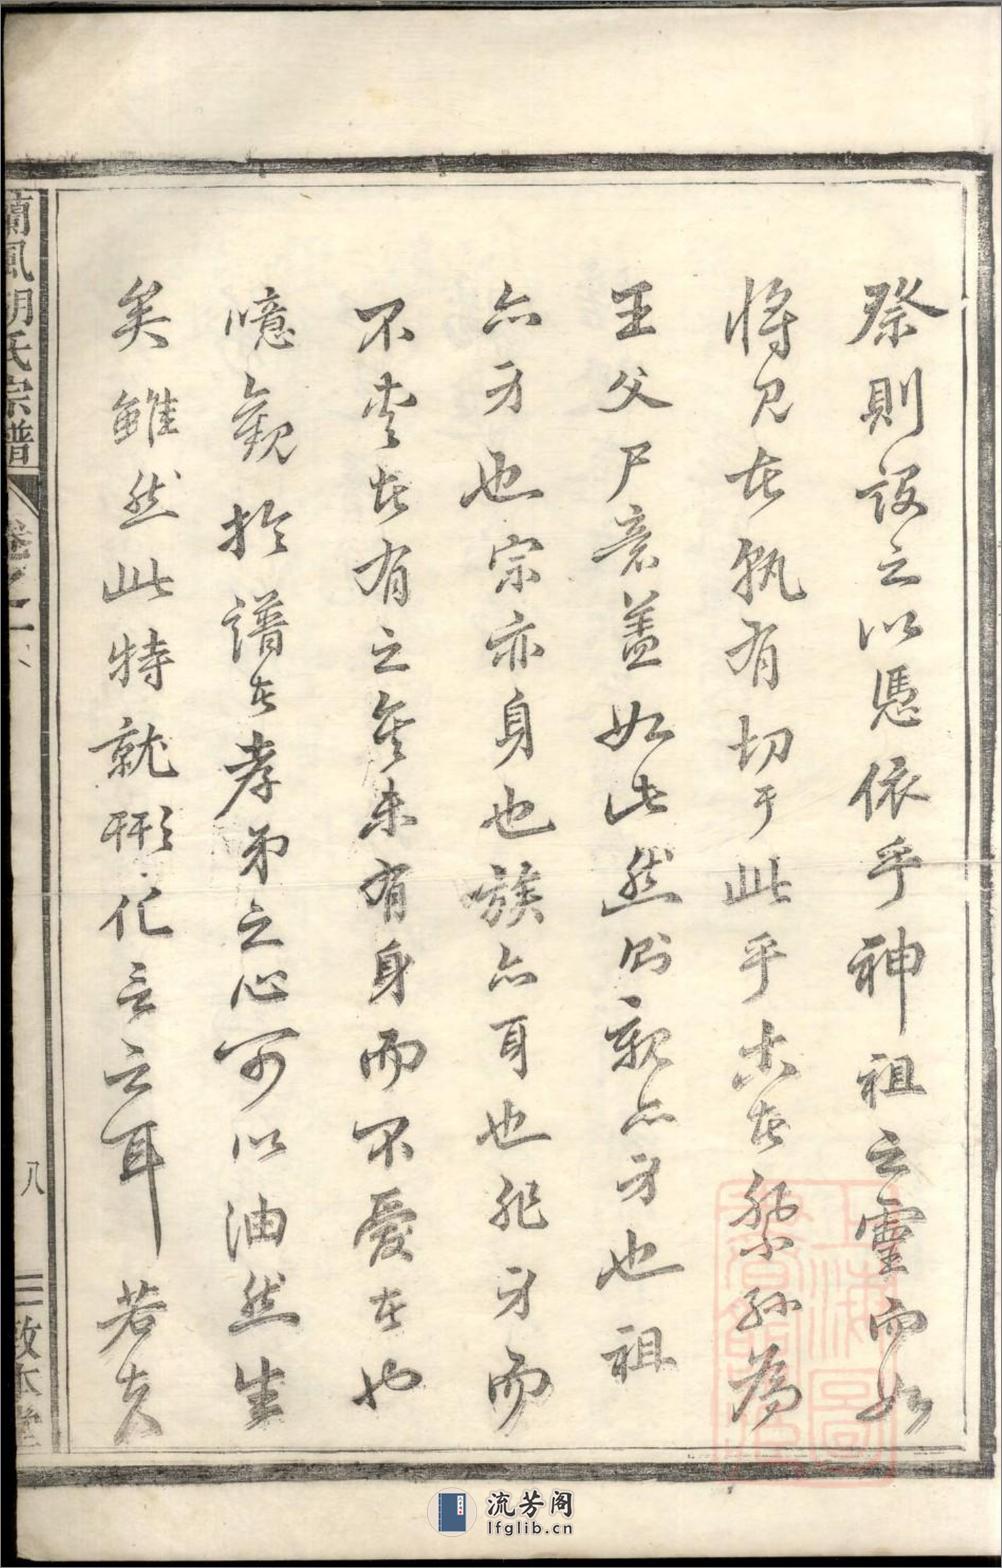 祭則設之以憑依乎神祖之靈而如
將見者孰有切于此乎古者祭孫為
王父尸意蓋如此然則親亦身也祖
亦身也宗亦身也族亦耳也非身而
不愛者有之矣未有身而不愛者也
噫觀於譜者孝弟之心可以油然生
矣雖然此特就形化言云耳若夫
蘭風胡氏宗譜
卷之一
八
三
敦本堂
流芳阁
lfglib.cn